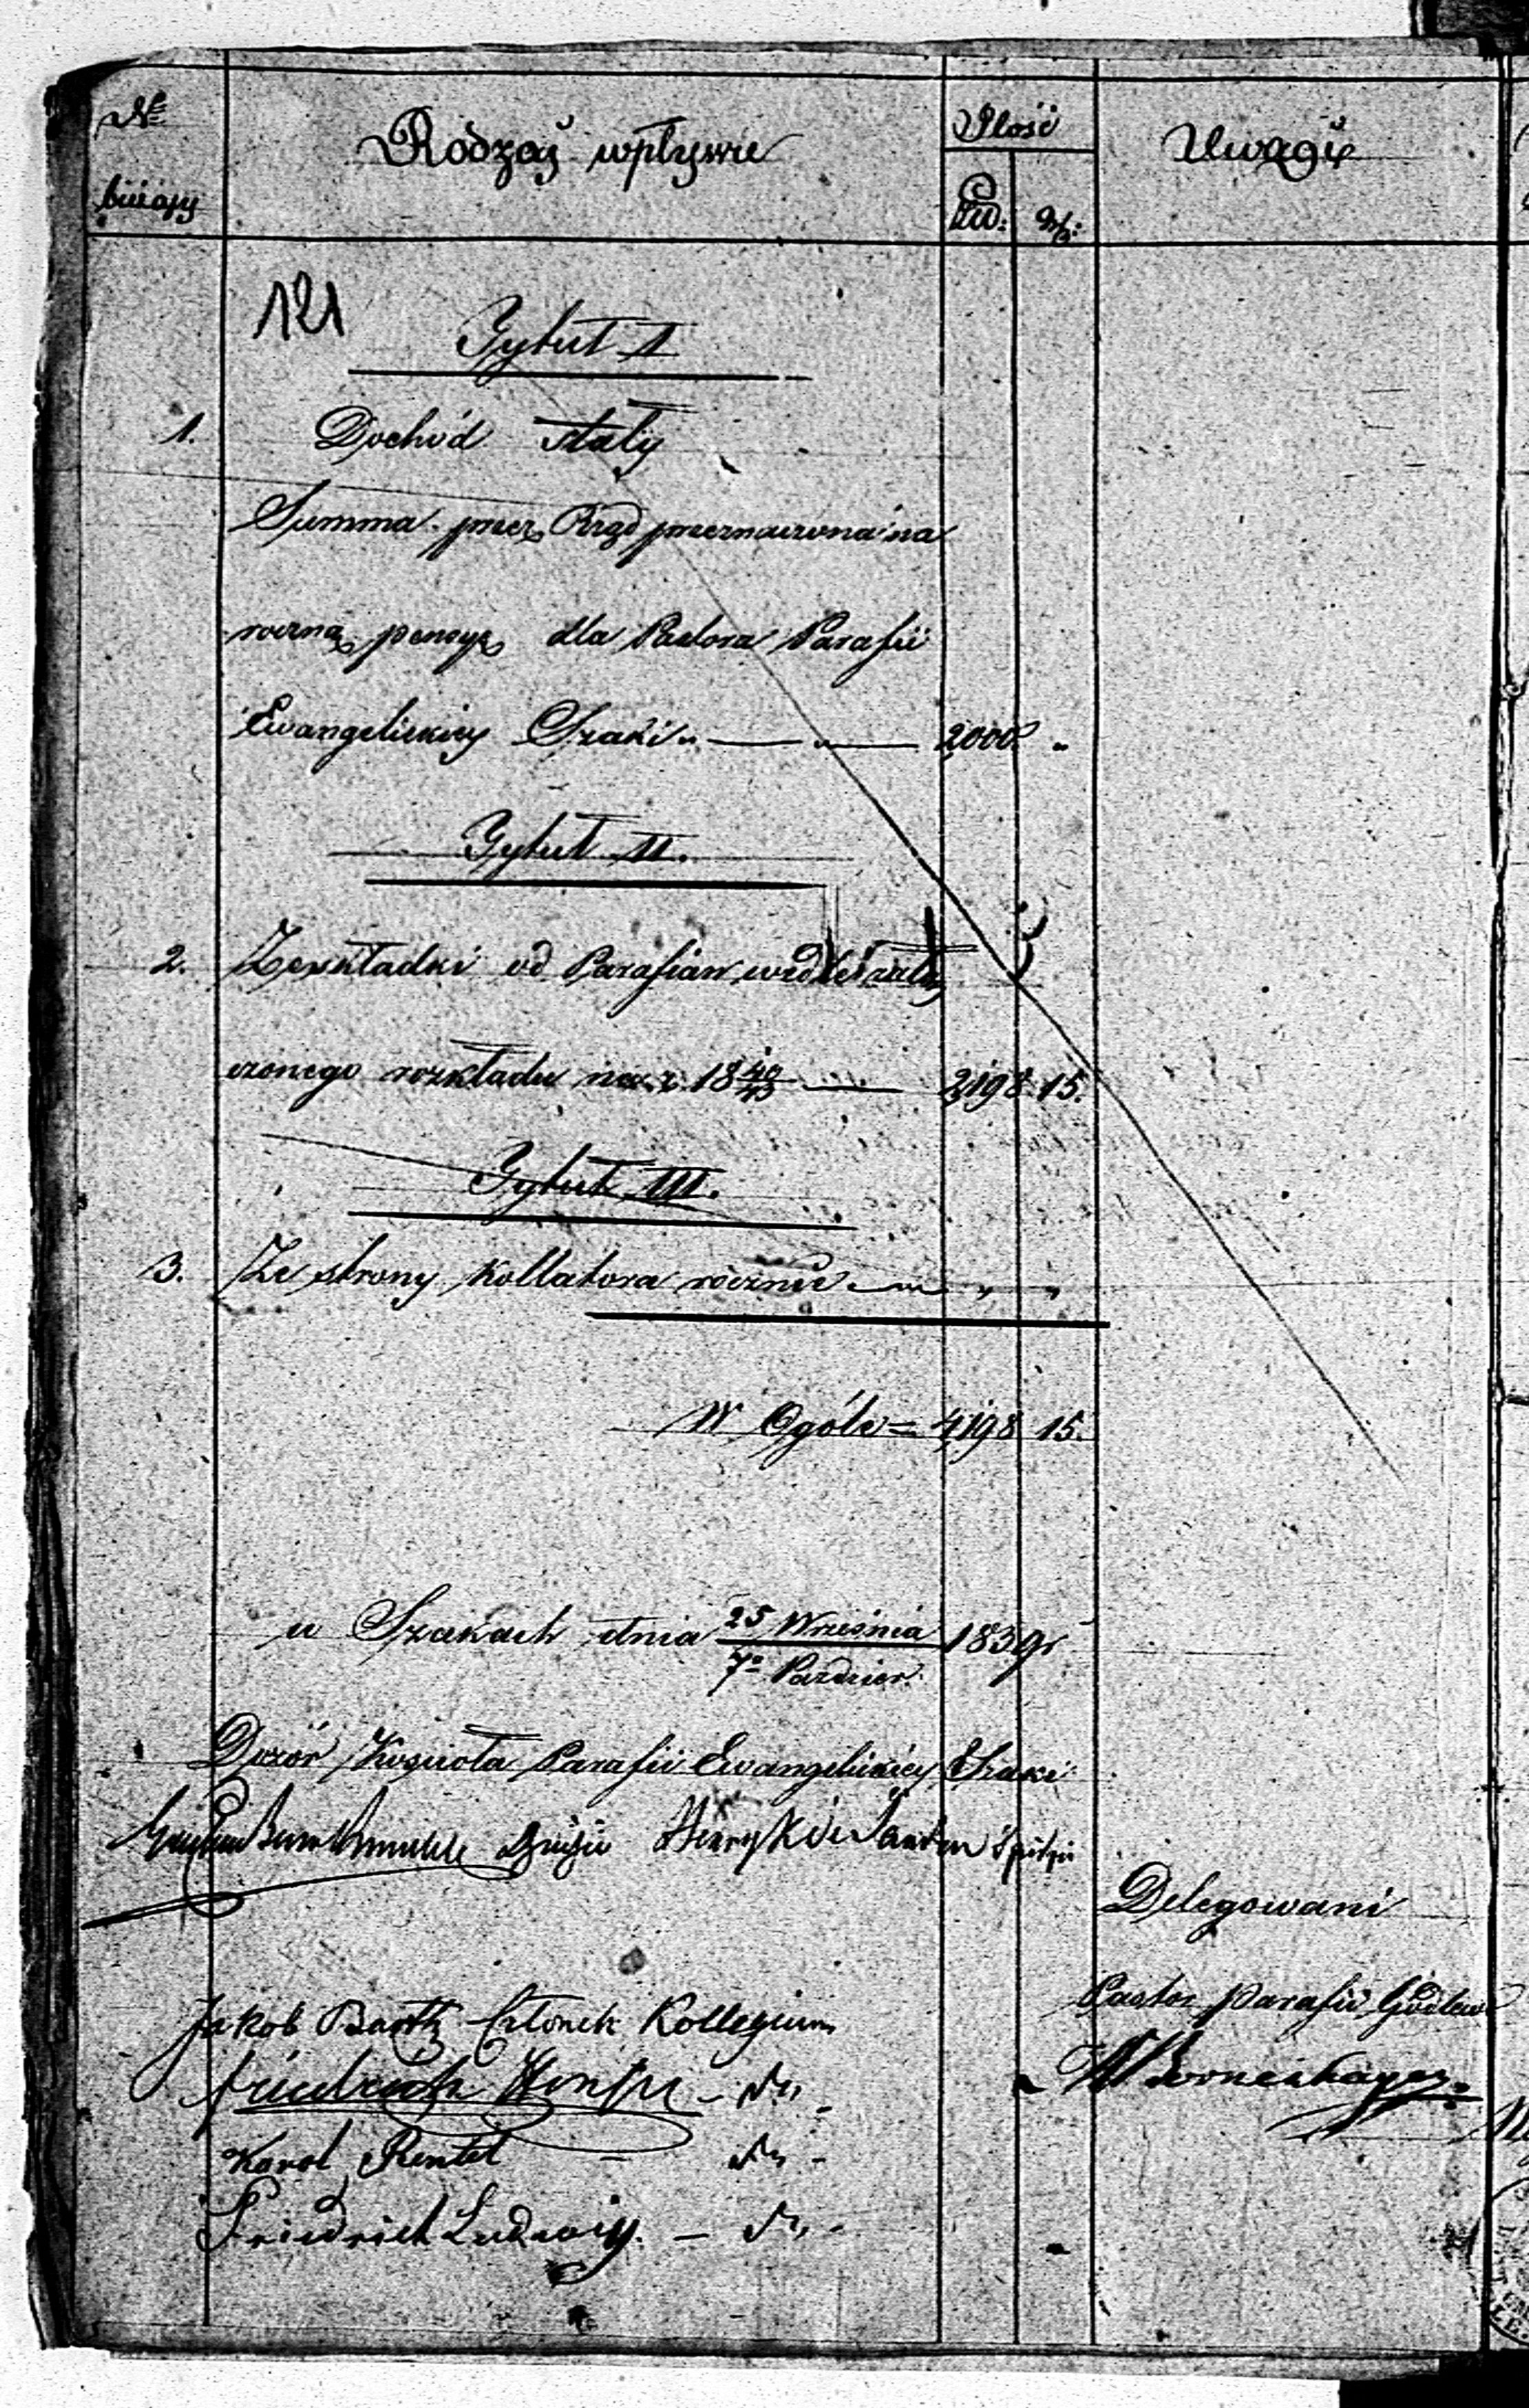 № bieżący
Rodzaj wpływu
Ilość
Uwagi
121
Tytuł I
1. Dochód stały
Summa przez Rząd przeznaczona na
roczną pensyę dla Pastora Parafii
Ewangelickiey Szaki „ — „ — 2000 „
Tytuł II.
2. Ze składki od Parafian
czonego rozkładu na r. 18 40/43 — 2,198 15.
Tytuł III.
3. Ze strony Kollatora rocznie — „ „
W Ogóle = 4,198 15.
w Szakach dnia 25 Września / 7º Paździer. 1839 r
Dozór Kościoła Parafii Ewangelickiéy Szaki
Henryk
Delegowani
Pastor Parafii Godlewo
Jakob Barth Członek Kollegium
Friedrich
Karol Rentel
Friedrich Ludwig.